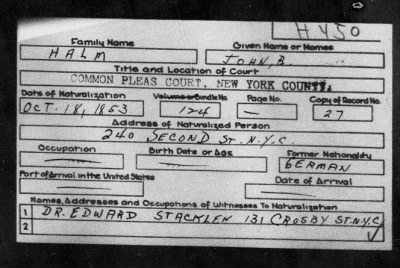 H450
Family Name Given Name or Names
HALM JOHN, B.
Title and Location of Court
COMMON PLEAS COURT, NEW YORK COUNTY.
Date of Naturalization Volume or Bundle No. Page No. Copy of Record No.
OCT. 18, 1853 124 — 27
Address of Naturalized Person
240 SECOND ST. N.Y.C.
Occupation Birth Date or Age Former Nationality
— — GERMAN
Port of Arrival in the United States Date of Arrival
— —
Names, Addresses and Occupations of Witnesses To Naturalization
1 DR. EDWARD STACKLEN 131 CROSBY ST. N.Y.C
2